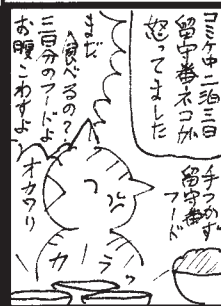 コミケ中二泊三日
留守番ネコが
怒ってました
手つかず
留守番
フード
まだ
食べるの?
三日分のフードよ
お腹こわすよ
オカワリ
カラッ